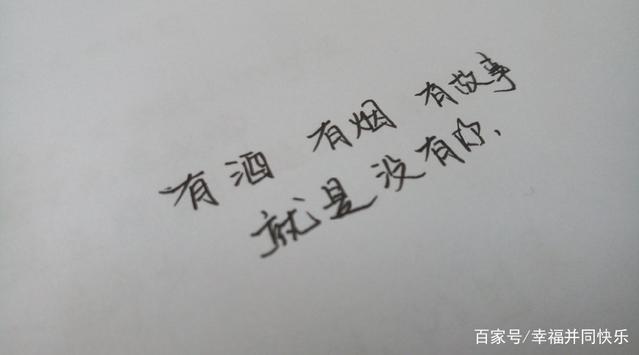 有酒 有烟 有故事
就是没有你.
百家号/幸福并同快乐